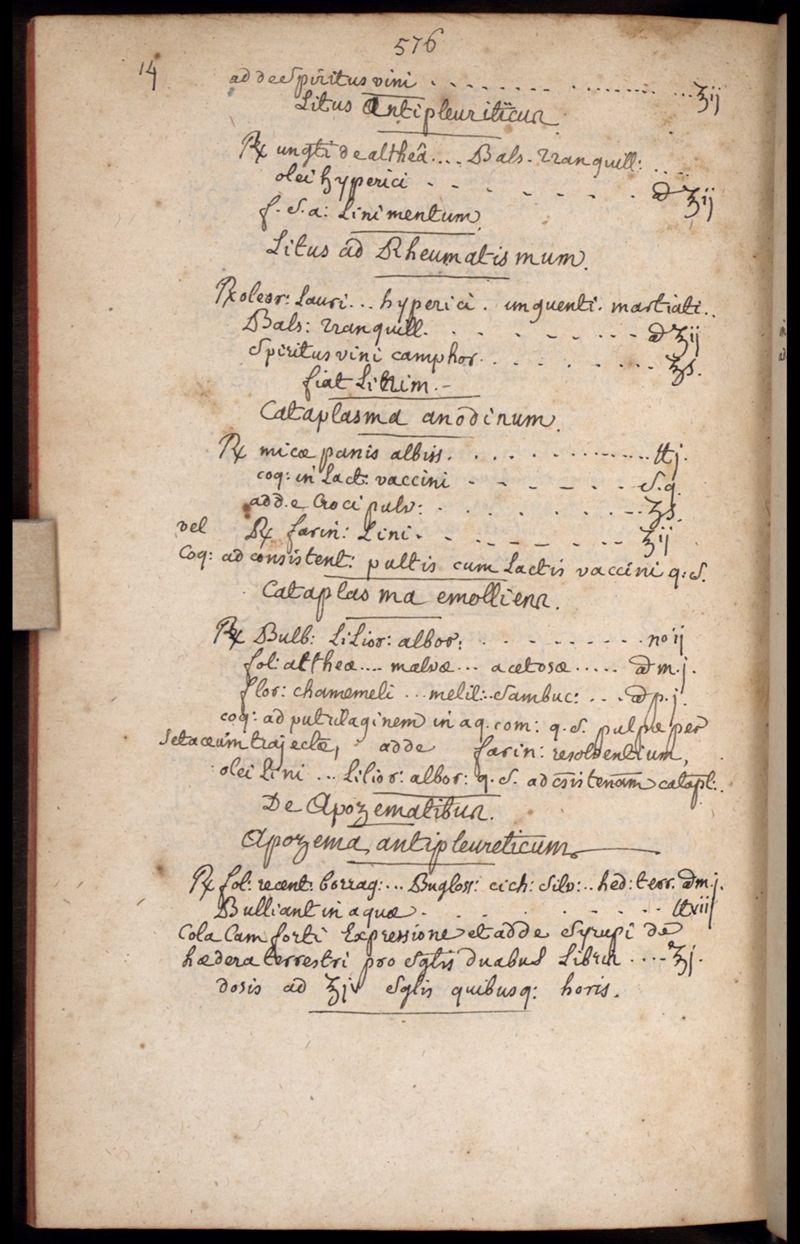 576
14
adde Spiritus vini . . . . . . . . . . . . . . ʒij
Litus Antipleuriticus
℞ ungti de altheâ .... Bals. tranquill: . . . .
olei hyperici . . . . . . . aā ʒij
f. S. a: Linimentum.
Litus ad Rheumatismum.
℞ oleor: Lauri ... hyperici . unguenti. martiati ..
Bals: tranquill. . . . . . . . aā ʒij
Spiritus vini camphor. . . . . . . . . ʒs.
fiat Litum. -
Cataplasma anodinum.
℞ micæ panis albiss. . . . . . . . . . . . ℔j.
coq: in Lact: vaccini . . . . . . S.q.
adde Croci pulv: . . . . . . . . ʒs.
vel ℞ farin: Lini . . . . . . . . . ʒij
Coq: ad consistent: pultis cum Lactis vaccini q: S.
Cataplasma emolliens.
℞ Bulb: Lilior: albor: . . . . . . . . . no ij
fol: altheæ .... malvæ ... acetosæ ..... aā m.j.
flor: chamemeli ... melil: .. Sambuc: . . . aā p.j.
coq: ad putrilaginem in aq. com: q. S. pulpæ per
Setaceum trajectæ, adde farin: resolventium,
olei Lini ... Lilior: albor: q. S. ad cōsistenām catapl:.
De Apozematibus.
Apozema antipleureticum.
℞ fol: recent: borrag: ... Bugloss: cich: Silv: .. hed: terr. aā m.j.
Bulliant in aquæ . . . . . . . . . ℔viij
Cola Cam forti Expressione et adde Syrupi de
hædera terrestri pro Sglis duabus Libris .... ʒj.
dosis ad ʒiv Sglis quibusq: horis.